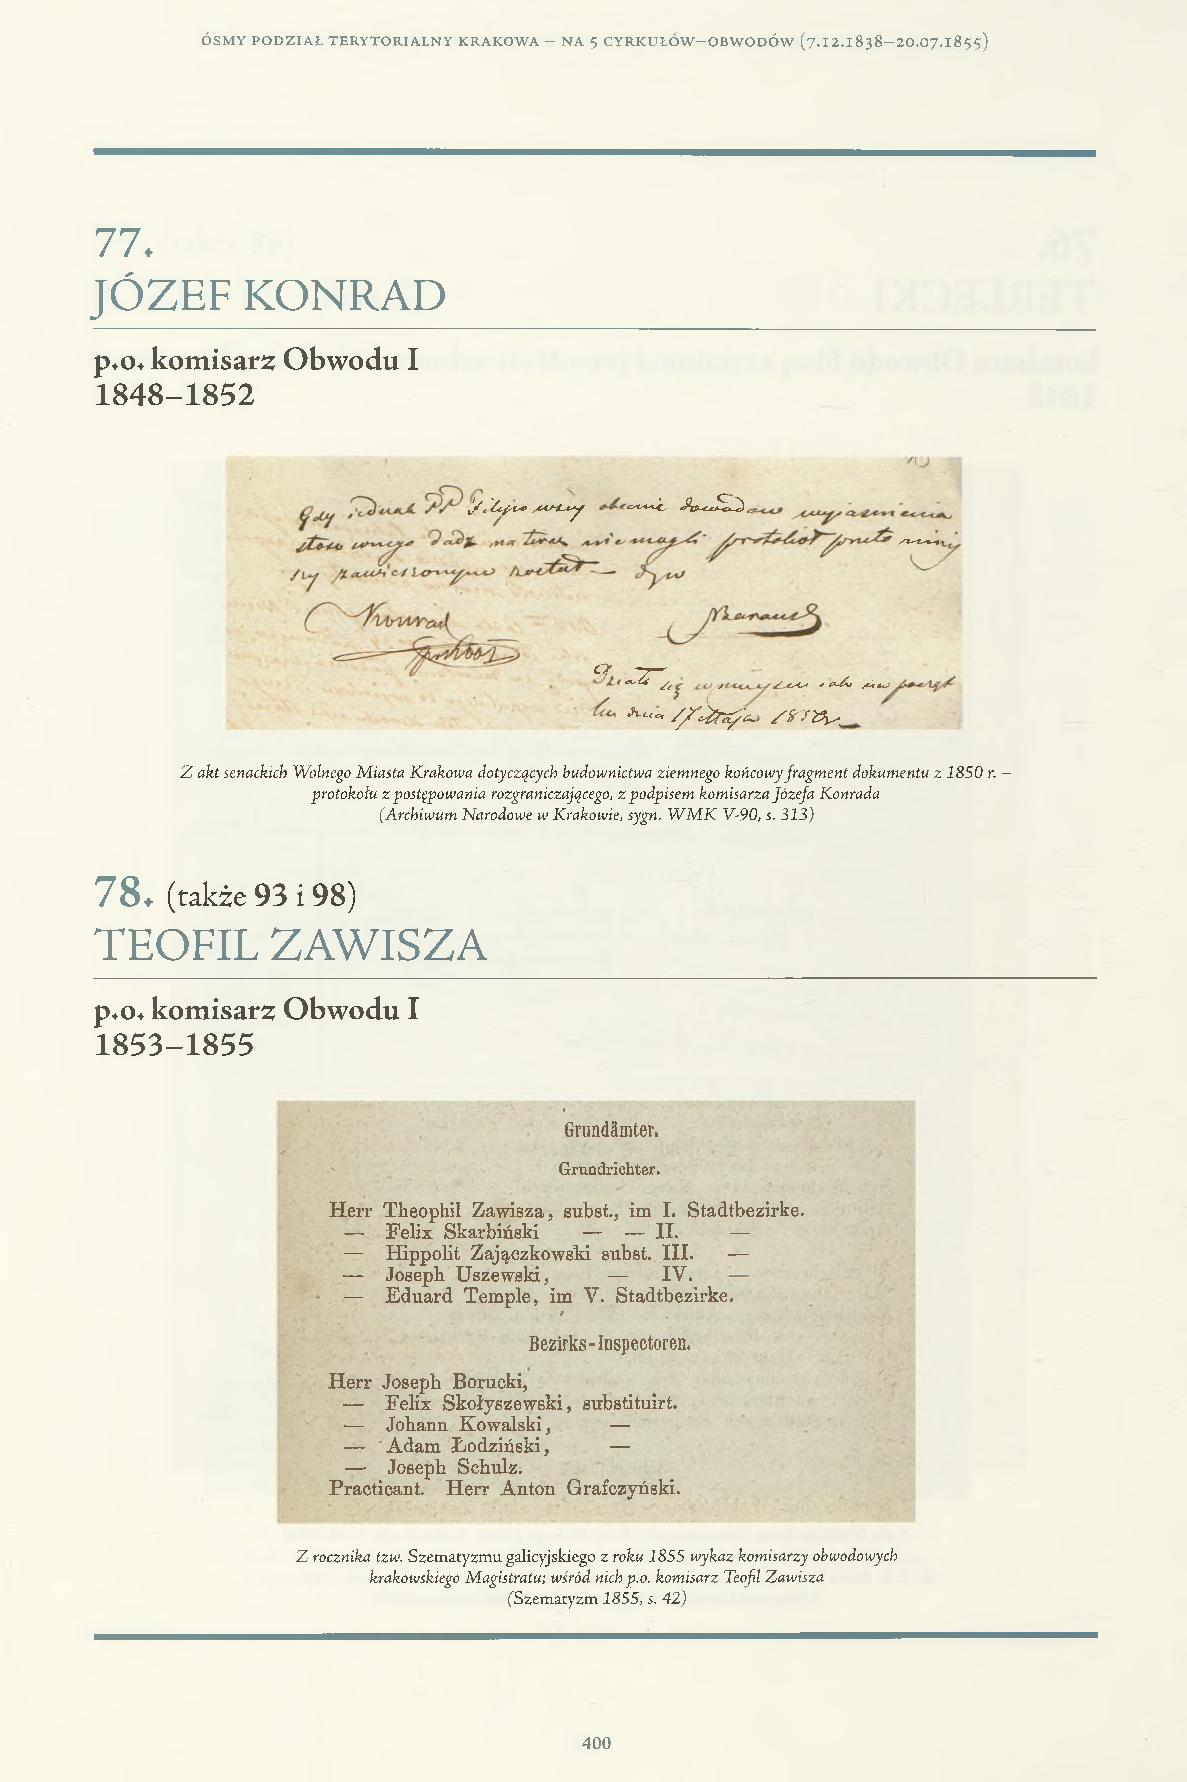 ÓSMY PODZIAŁ TERYTORIALNY KRAKOWA – NA 5 CYRKUŁÓW–OBWODÓW (7.12.1838–20.07.1855)
77.
JÓZEF KONRAD
p.o. komisarz Obwodu I
1848–1852
Gdy jednak PP Filipowscy obecnie dowodów wyjaśnienia
dadź na teraz nie mogli protokół
zawieszonym został — 
Konrad
Działo się w
dnia 17 Maja 1850 r.
Z akt senackich Wolnego Miasta Krakowa dotyczących budownictwa ziemnego końcowy fragment dokumentu z 1850 r. –
protokołu z postępowania rozgraniczającego, z podpisem komisarza Józefa Konrada
(Archiwum Narodowe w Krakowie, sygn. WMK V-90, s. 313)
78. (także 93 i 98)
TEOFIL ZAWISZA
p.o. komisarz Obwodu I
1853–1855
Grundämter.
Grundrichter.
Herr Theophil Zawisza, subst., im I. Stadtbezirke.
— Felix Skarbiński — — II. —
— Hippolit Zajączkowski subst. III. —
— Joseph Uszewski, — IV. —
— Eduard Temple, im V. Stadtbezirke.
Bezirks-Inspectoren.
Herr Joseph Borucki,
— Felix Skołyszewski, substituirt.
— Johann Kowalski, —
— Adam Łodziński, —
— Joseph Schulz.
Practicant. Herr Anton Grafczyński.
Z rocznika tzw. Szematyzmu galicyjskiego z roku 1855 wykaz komisarzy obwodowych
krakowskiego Magistratu; wśród nich p.o. komisarz Teofil Zawisza
(Szematyzm 1855, s. 42)
400